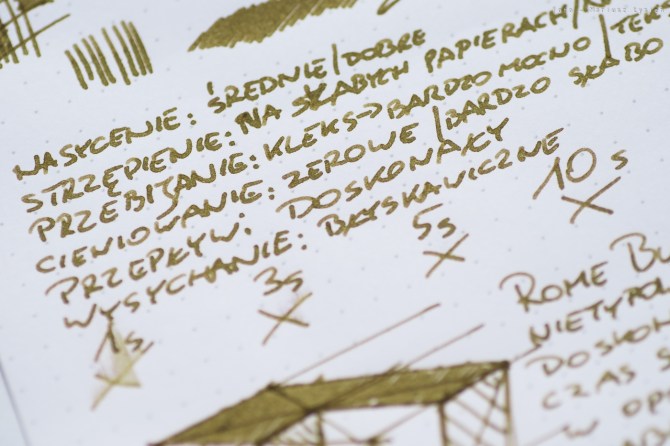 NASYCENIE: ŚREDNIE/DOBRE
STRZĘPIENIE: NA SŁABYCH PAPIERACH/
PRZEBIJANIE: KLEKS→BARDZO MOCNO/TEK
CIENIOWANIE: ZEROWE/BARDZO SŁABO
PRZEPŁYW: DOSKONAŁY
WYSYCHANIE: BŁYSKAWICZNE
1s 3s 5s 10s
ROME BU
NIETYPOW
DOSKON
CZAS S
W OP